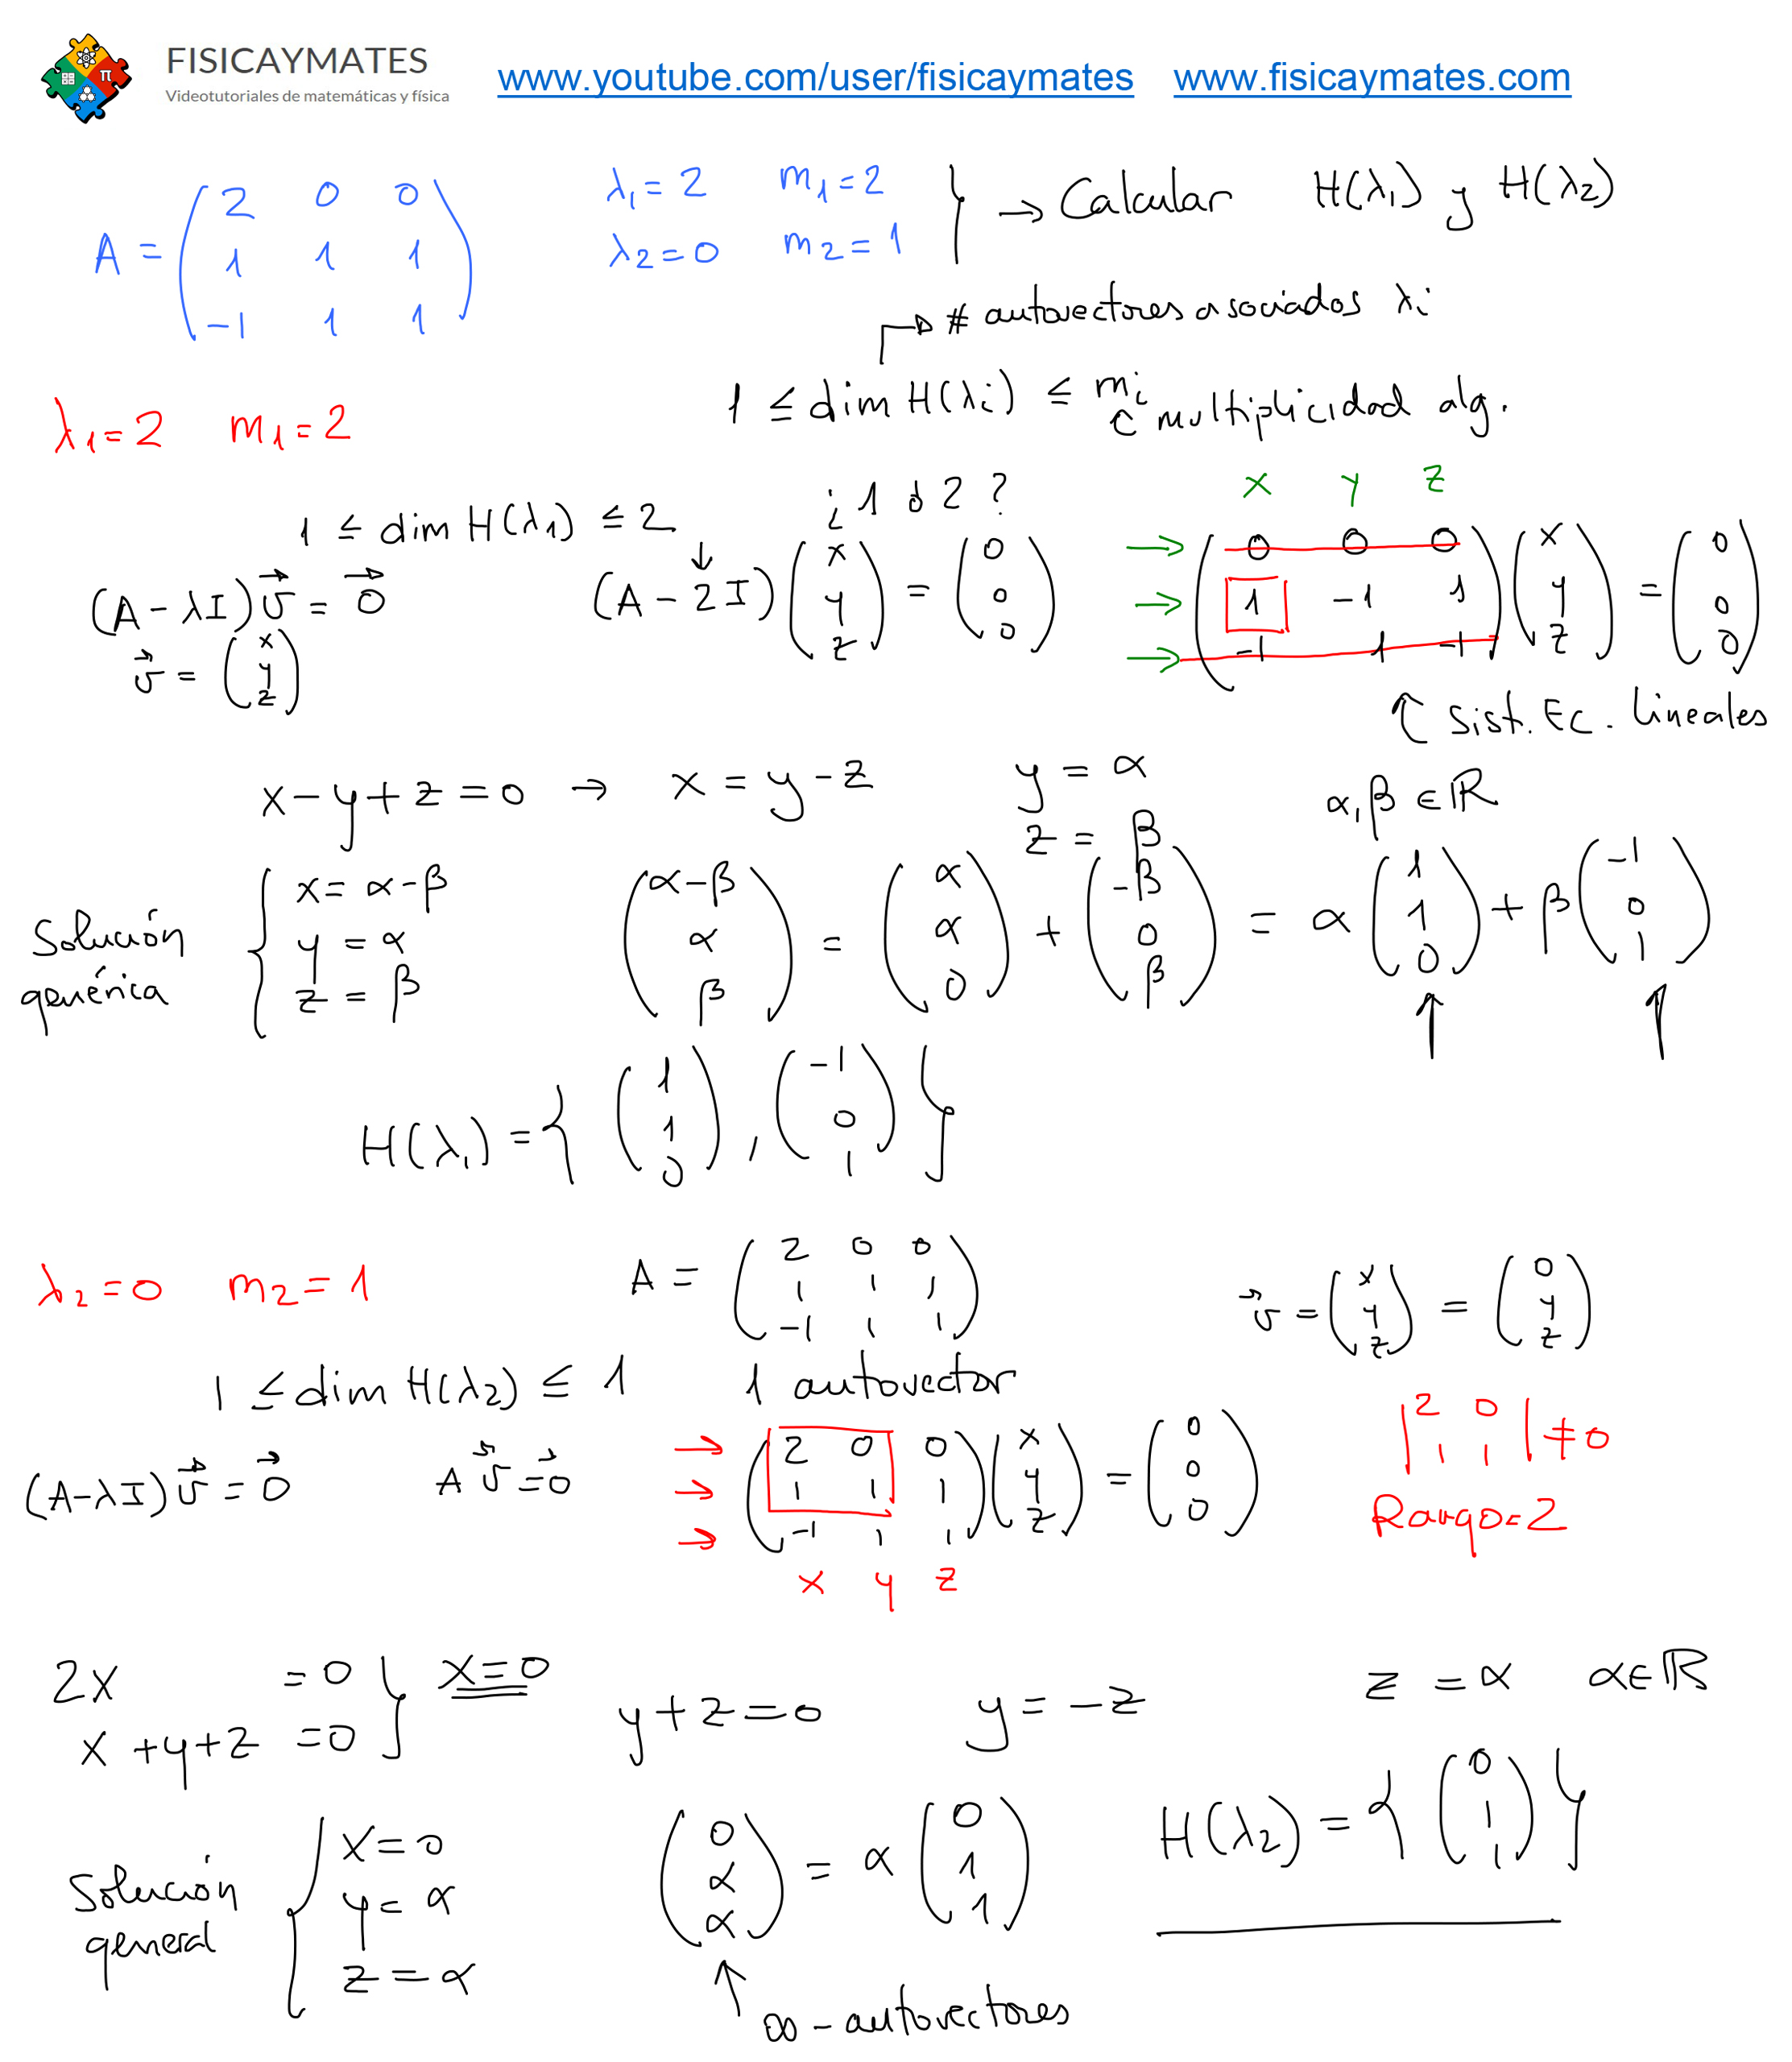 FISICAYMATES
Videotutoriales de matemáticas y física
www.youtube.com/user/fisicaymates www.fisicaymates.com
A = ( 2 0 0 ; 1 1 1 ; -1 1 1 )
λ1 = 2 m1 = 2
λ2 = 0 m2 = 1
→ Calcular H(λ1) y H(λ2)
# autovectores asociados λi
1 ≤ dim H(λi) ≤ mi
multiplicidad alg.
λ1 = 2 m1 = 2
1 ≤ dim H(λ1) ≤ 2 ¿1 ó 2?
(A - λI) v = 0
v = ( x ; y ; z )
(A - 2I) ( x ; y ; z ) = ( 0 ; 0 ; 0 )
x y z
→ → → ( 0 0 0 ; 1 -1 1 ; -1 1 -1 ) ( x ; y ; z ) = ( 0 ; 0 ; 0 )
Sist. Ec. Lineales
x - y + z = 0 → x = y - z
y = α
z = β
α, β ∈ ℝ
Solución
genérica
x = α - β
y = α
z = β
( α-β ; α ; β ) = ( α ; α ; 0 ) + ( -β ; 0 ; β ) = α ( 1 ; 1 ; 0 ) + β ( -1 ; 0 ; 1 )
H(λ1) = { ( 1 ; 1 ; 0 ) , ( -1 ; 0 ; 1 ) }
λ2 = 0 m2 = 1
A = ( 2 0 0 ; 1 1 1 ; -1 1 1 )
v = ( x ; y ; z ) = ( 0 ; y ; z )
1 ≤ dim H(λ2) ≤ 1 1 autovector
(A - λI) v = 0
A v = 0
→ → → ( 2 0 0 ; 1 1 1 ; -1 1 1 ) ( x ; y ; z ) = ( 0 ; 0 ; 0 )
x y z
| 2 0 ; 1 1 | ≠ 0
Rango = 2
2x = 0
x + y + z = 0
x = 0
y + z = 0 y = -z
z = α α ∈ ℝ
Solución
general
x = 0
y = α
z = α
( 0 ; α ; α ) = α ( 0 ; 1 ; 1 )
H(λ2) = { ( 0 ; 1 ; 1 ) }
∞ - autovectores